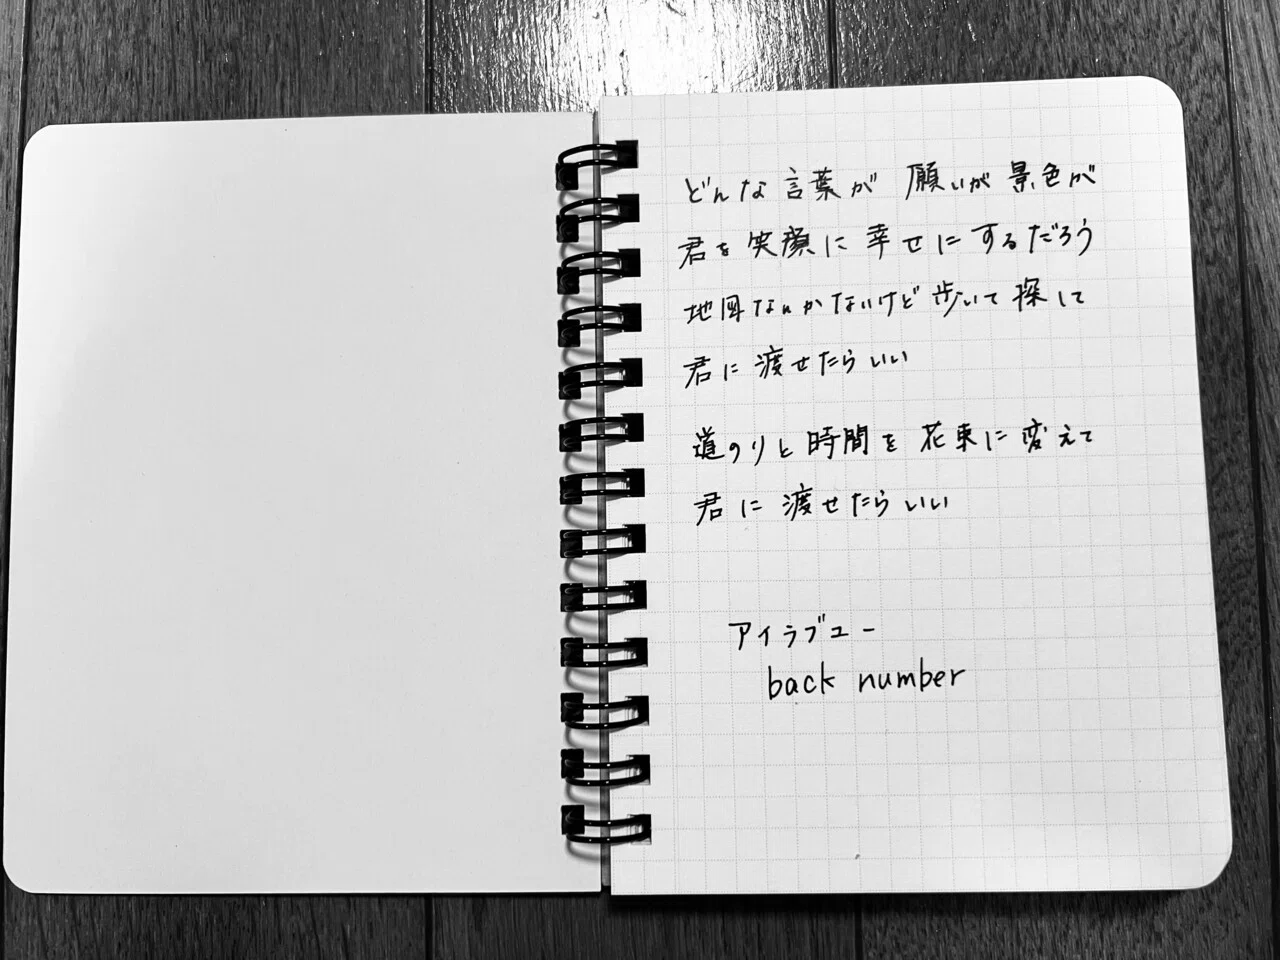 どんな言葉が 願いが 景色が
君を 笑顔に 幸せに するだろう
地図なんかないけど 歩いて 探して
君に 渡せたらいい
道のりと 時間を 花束に 変えて
君に 渡せたらいい
アイラブユー
back number